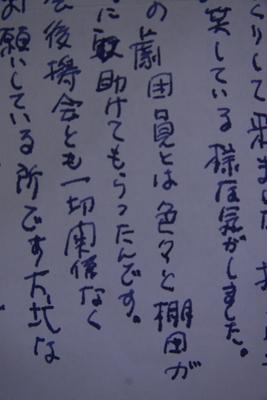 くりして来ました
笑している様な気がしました。
の劇団員とは色々と棚田が
に取助けてもらったんです。
後援会とも一切関係なく
お願いしている所です大武な